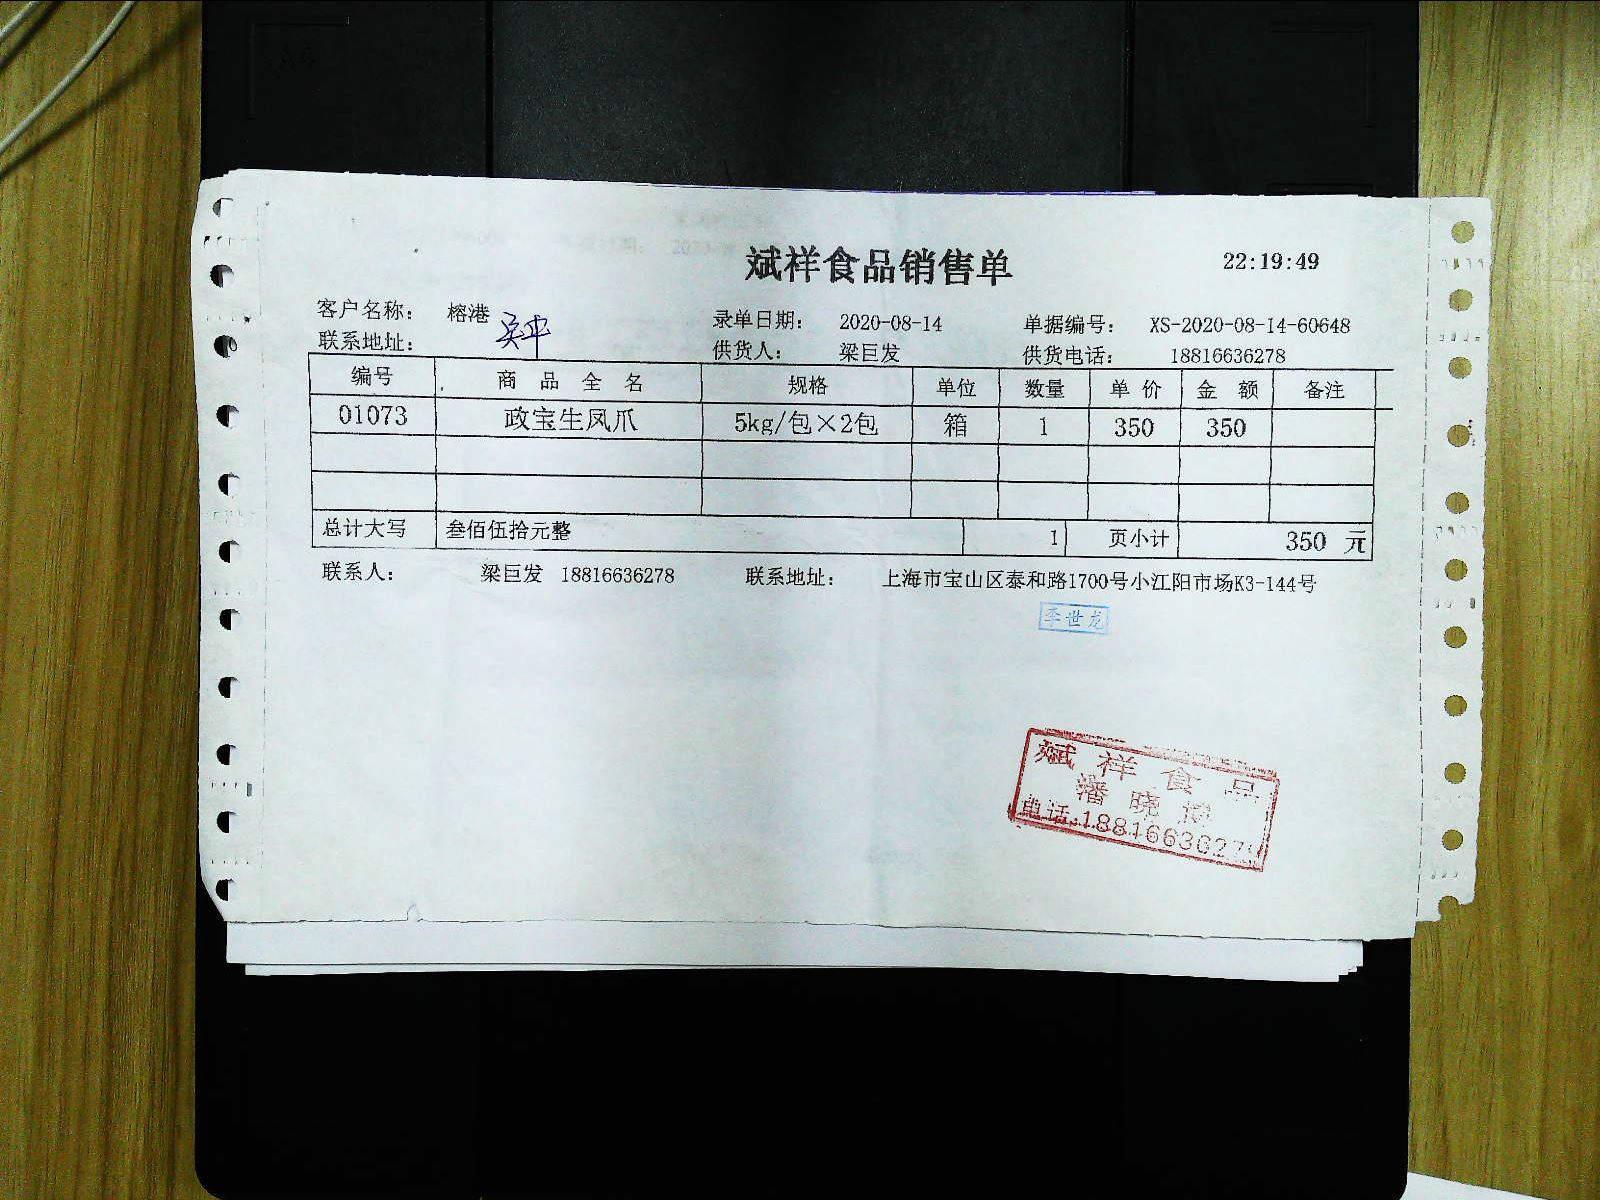 斌祥食品销售单 22:19:49
客户名称： 榕港 录单日期： 2020-08-14 单据编号： XS-2020-08-14-60648
联系地址： 供货人： 梁巨发 供货电话： 18816636278
编号 商品全名 规格 单位 数量 单价 金额 备注
01073 政宝生凤爪 5kg/包×2包 箱 1 350 350
总计大写 叁佰伍拾元整 1 页小计 350 元
联系人： 梁巨发 18816636278 联系地址： 上海市宝山区泰和路1700号小江阳市场K3-144号
李世龙
斌祥食品
潘晓
电话:1881663627